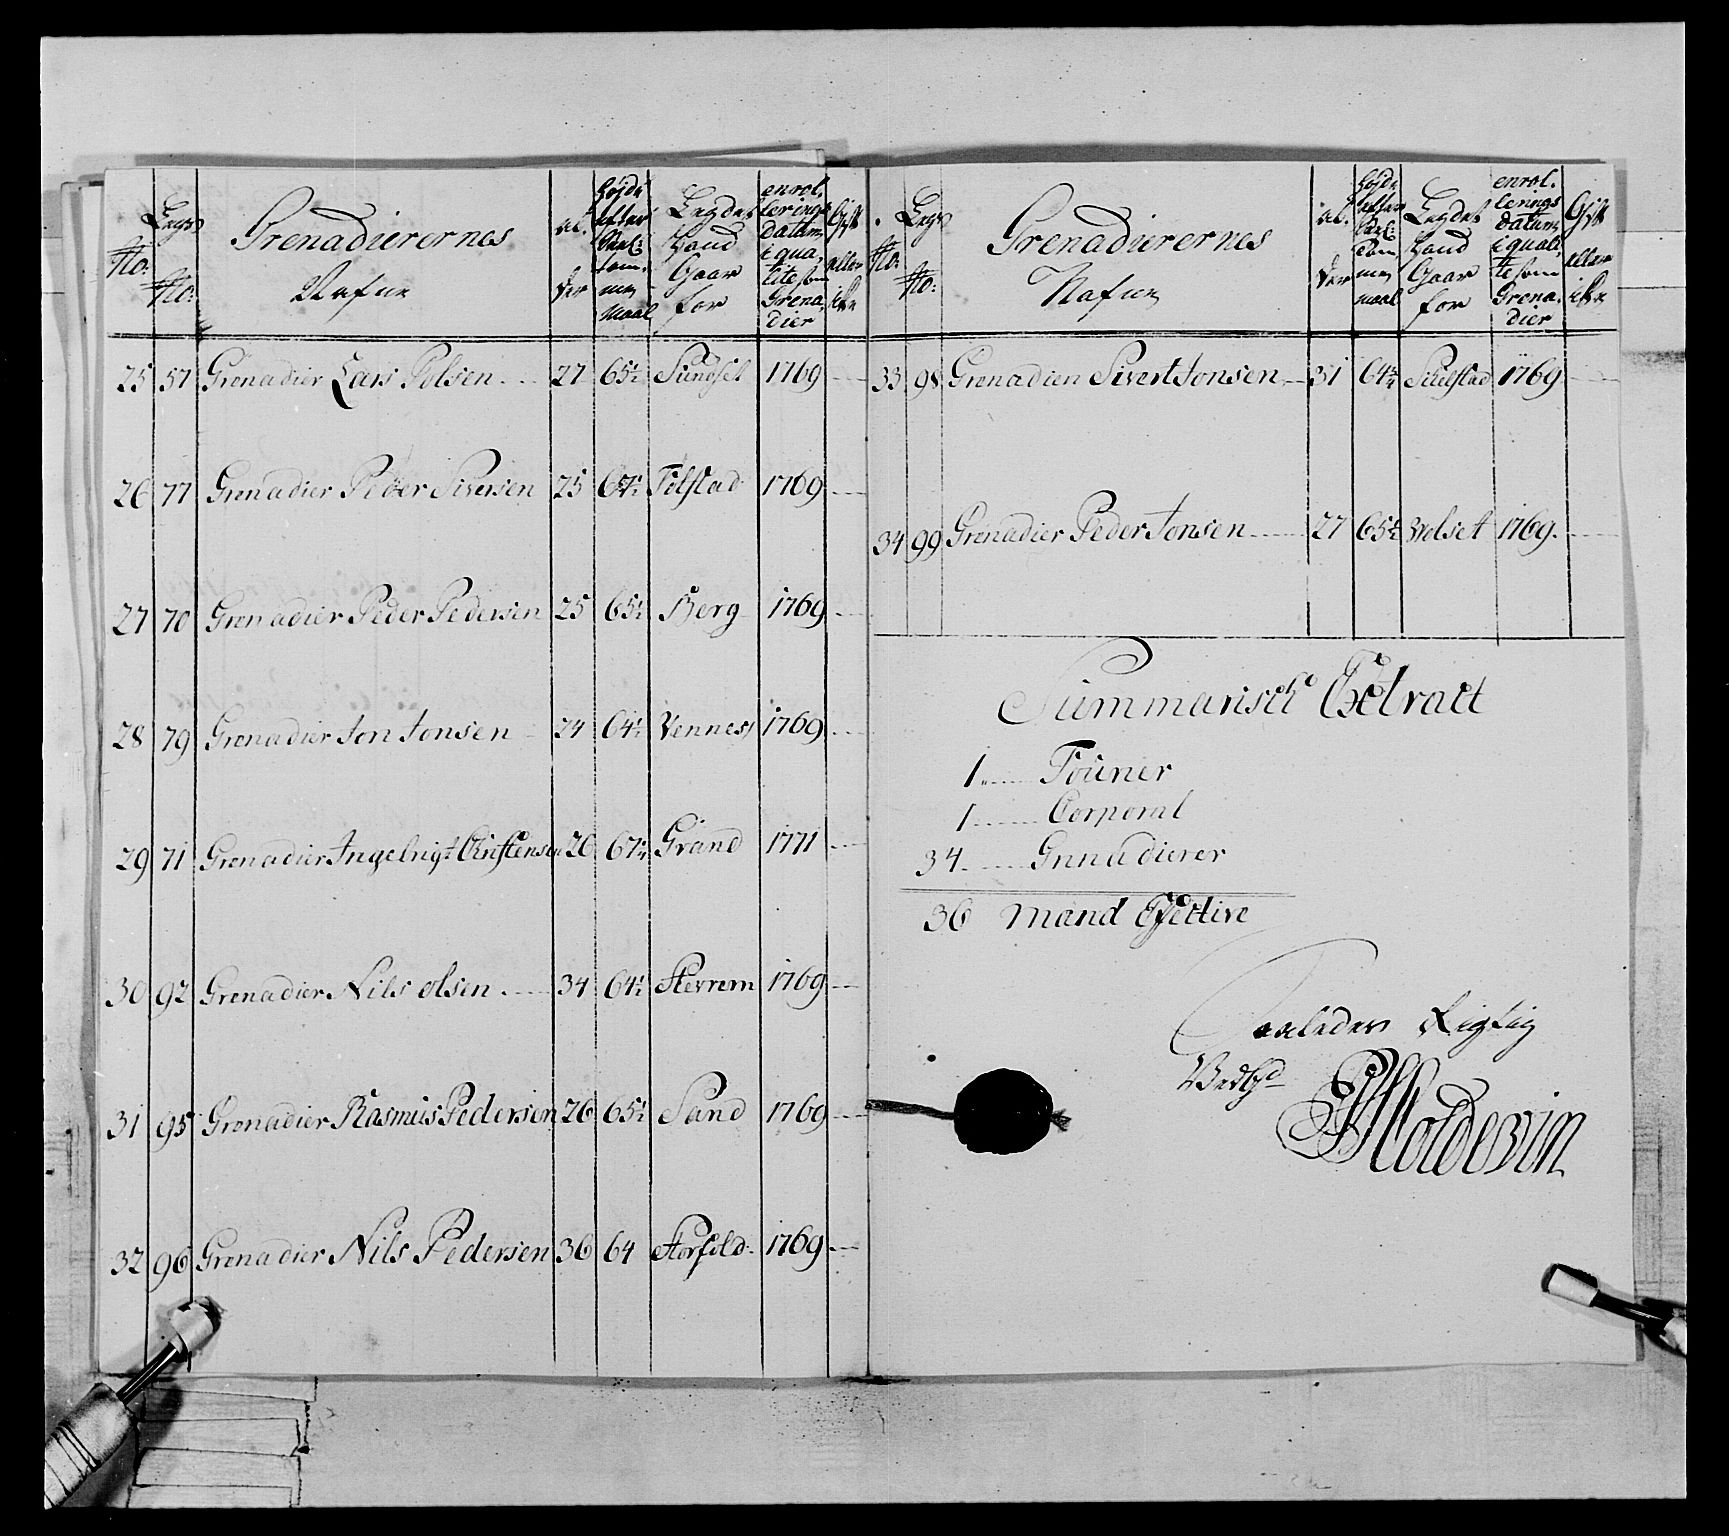 No:
Legs No:
Grenadierernes Nafne
al. der
Højde efter Rhel: tom- me maal
Legdet hand Gaar for
enrol. lerings datum i qua, lite som Grena, dier
Gift eller ikke
25 57 Grenadier Lars Polsen 27 65½ Sundset 1769
26 77 Grenadier Peder Siversen 25 67½ Filstad 1769
27 70 Grenadier Peder Pedersen 25 65½ Berg 1769
28 79 Grenadier Jon Jonsen 24 64½ Vennes 1769
29 71 Grenadier Ingebrigt Christensen 26 67¼ Grand 1771
30 92 Grenadier Nils olsen 34 64½ Sterrem 1769
31 95 Grenadier Rasmus Pedersen 26 65½ Sand 1769
32 96 Grenadier Nils Pedersen 36 64 Storfold 1769
No:
Legs No:
Grenadierernes Nafne
al. der
Højde efter Rhel: Tom me maal
Legdet hand Gaar for
enrol. lerings datum i quali, te som Grena, dier
Gift eller ikke
33 98 Grenadier Sivert Jonsen 31 64¾ 1769
34 99 Grenadier Peder Jonsen 27 65½ Wolset 1769.
Summarisch Extract
1 Fourier
1 Corporal
34 Grenadierer
36 Mand Effective
Saaledes Rigtig
Holdevin